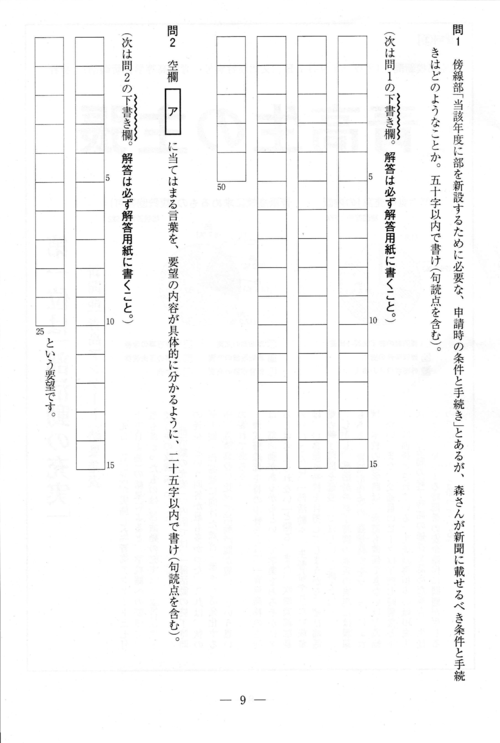 問1 傍線部「当該年度に部を新設するために必要な、申請時の条件と手続き」とあるが、森さんが新聞に載せるべき条件と手続
きはどのようなことか。五十字以内で書け(句読点を含む)。
(次は問1の下書き欄。解答は必ず解答用紙に書くこと。)
5
10
15
50
問2 空欄 ア に当てはまる言葉を、要望の内容が具体的に分かるように、二十五字以内で書け(句読点を含む)。
(次は問2の下書き欄。解答は必ず解答用紙に書くこと。)
5
10
15
25
という要望です。
— 9 —